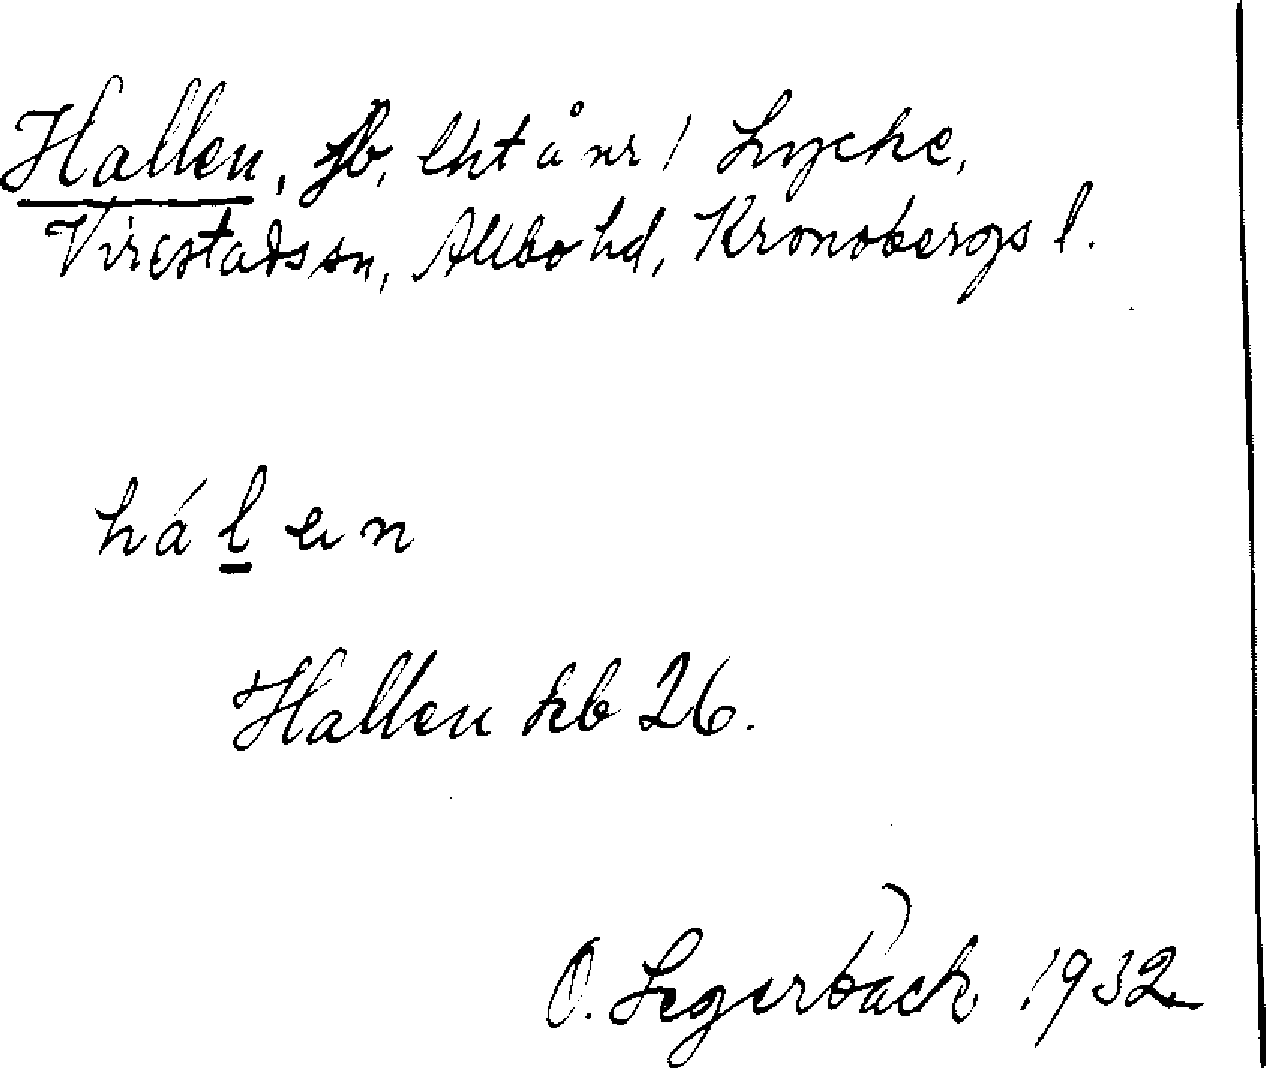 Hallen, fb, lht å nr 1 Lycke,
Virestads sn, Allbo hd, Kronobergs l.
hálen
Hallen kb 26.
O. Segerbäck 1932